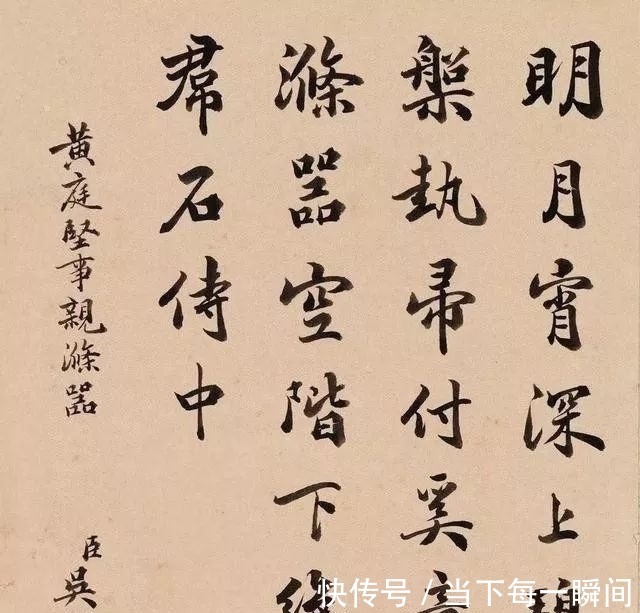 明月宵深上
槃執帚付奚
滌器空階下
君石侍中
黃庭堅事親滌器
臣吳
快传号/当下每一瞬间